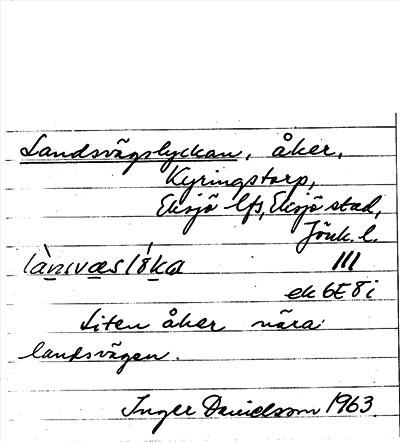 Landsvägslyckan, åker,
Kyringstorp,
Eksjö lfs, Eksjö stad,
Jönk. l.
lànsvæslókα III
ek 6E 8i
Liten åker nära
landsvägen.
Inger Danielsson 1963.